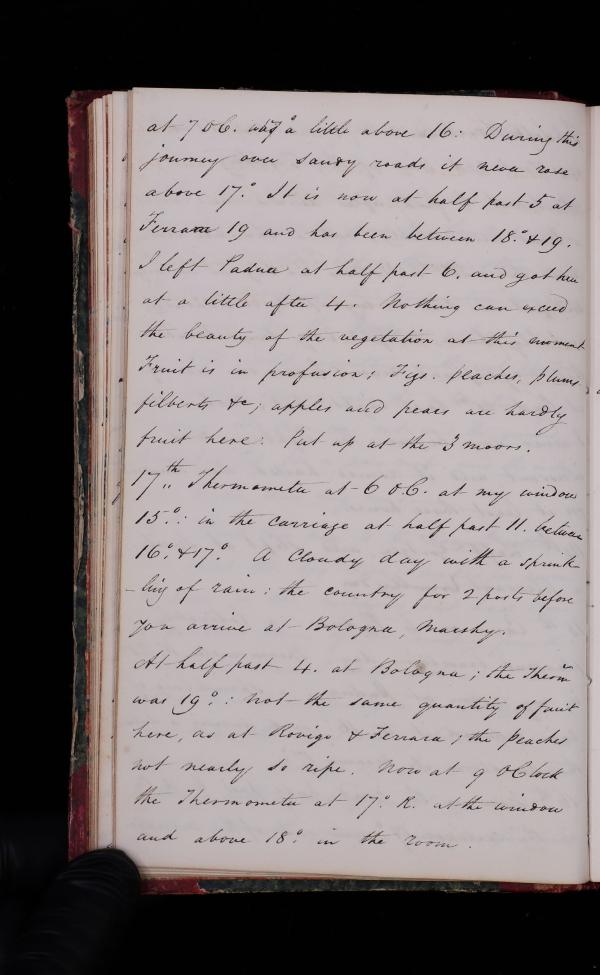 at 7 oC. was a little above 16: During this
journey over sandy roads it never rose
above 17.° It is now at half past 5 at
Ferrara 19 and has been between 18.° & 19.
I left Padua at half past 6. and got here
at a little after 4. Nothing can exceed
the beauty of the vegetation at this moment
Fruit is in profusion; Figs. Peaches, plums
filberts &c; apples and pears are hardly
fruit here. Put up at the 3 moors.
17th,, Thermometer at 6 oC. at my window
15.°: in the carriage at half past 11. between
16.° & 17.° A Cloudy day with a sprink-
-ling of rain: the country for 2 posts before
you arrive at Bologna, marshy.
At half past 4. at Bologna; the Therm
was 19.°: not the same quantity of fruit
here, as at Rovigo & Ferrara; the peaches
not nearly so ripe. Now at 9 oClock
the Thermometer at 17.° R. at the window
and above 18.° in the room.